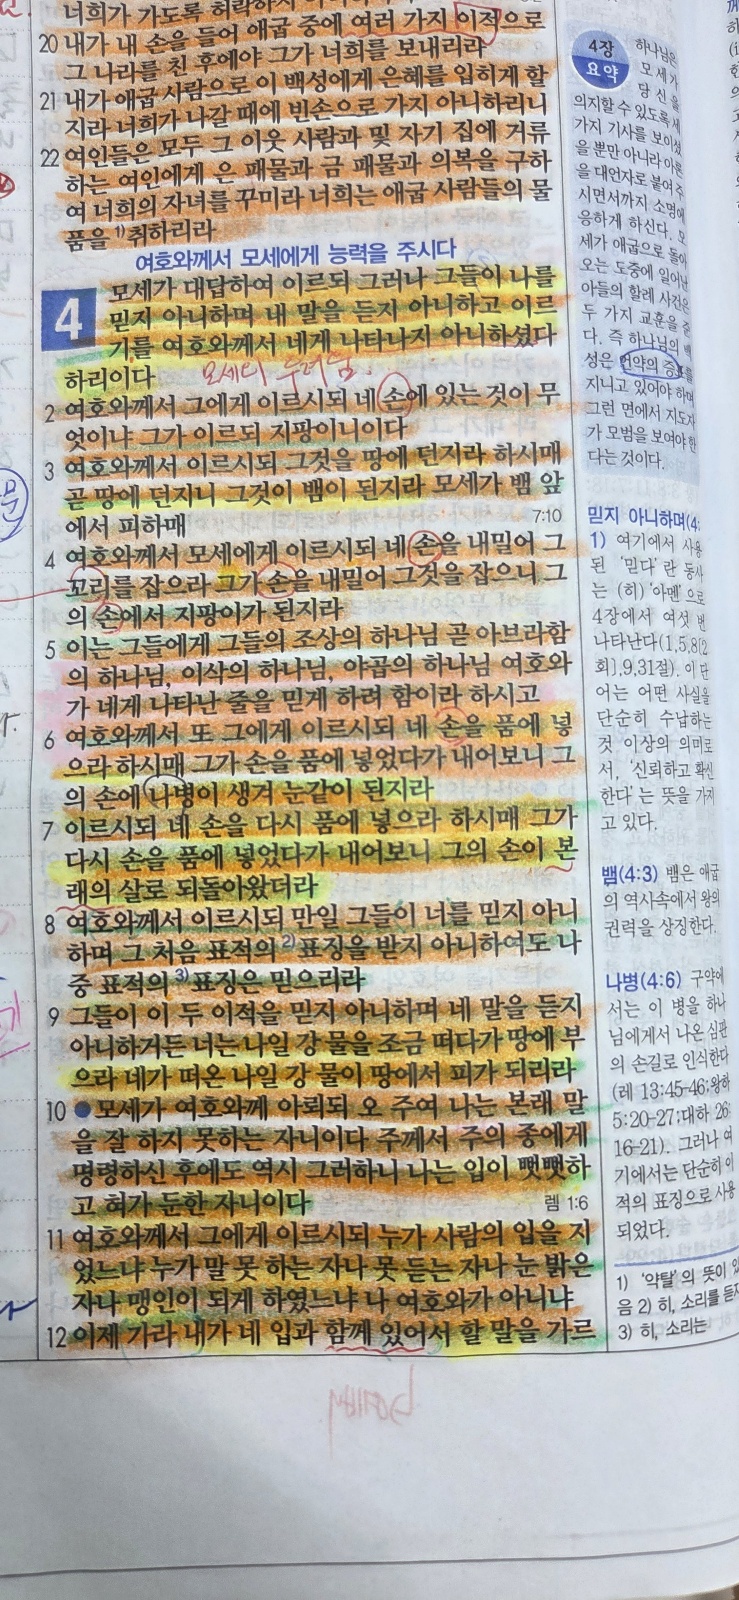 너희가 가도록 허락하지
20 내가 내 손을 들어 애굽 중에 여러 가지 이적으로
그 나라를 친 후에야 그가 너희를 보내리라
21 내가 애굽 사람으로 이 백성에게 은혜를 입히게 할
지라 너희가 나갈 때에 빈손으로 가지 아니하리니
22 여인들은 모두 그 이웃 사람과 및 자기 집에 거류
하는 여인에게 은 패물과 금 패물과 의복을 구하
여 너희의 자녀를 꾸미라 너희는 애굽 사람들의 물
품을 1) 취하리라
여호와께서 모세에게 능력을 주시다
4 모세가 대답하여 이르되 그러나 그들이 나를
믿지 아니하며 내 말을 듣지 아니하고 이르
기를 여호와께서 네게 나타나지 아니하셨다
하리이다 모세의 두려움.
2 여호와께서 그에게 이르시되 네 손에 있는 것이 무
엇이냐 그가 이르되 지팡이니이다
3 여호와께서 이르시되 그것을 땅에 던지라 하시매
곧 땅에 던지니 그것이 뱀이 된지라 모세가 뱀 앞
에서 피하매 7:10
4 여호와께서 모세에게 이르시되 네 손을 내밀어 그
꼬리를 잡으라 그가 손을 내밀어 그것을 잡으니 그
의 손에서 지팡이가 된지라
5 이는 그들에게 그들의 조상의 하나님 곧 아브라함
의 하나님, 이삭의 하나님, 야곱의 하나님 여호와
가 네게 나타난 줄을 믿게 하려 함이라 하시고
6 여호와께서 또 그에게 이르시되 네 손을 품에 넣
으라 하시매 그가 손을 품에 넣었다가 내어보니 그
의 손에 나병이 생겨 눈같이 된지라
7 이르시되 네 손을 다시 품에 넣으라 하시매 그가
다시 손을 품에 넣었다가 내어보니 그의 손이 본
래의 살로 되돌아왔더라
8 여호와께서 이르시되 만일 그들이 너를 믿지 아니
하며 그 처음 표적의 2) 표징을 받지 아니하여도 나
중 표적의 3) 표징은 믿으리라
9 그들이 이 두 이적을 믿지 아니하며 네 말을 듣지
아니하거든 너는 나일 강 물을 조금 떠다가 땅에 부
으라 네가 떠온 나일 강 물이 땅에서 피가 되리라
10 ●모세가 여호와께 아뢰되 오 주여 나는 본래 말
을 잘 하지 못하는 자니이다 주께서 주의 종에게
명령하신 후에도 역시 그러하니 나는 입이 뻣뻣하
고 혀가 둔한 자니이다 렘 1:6
11 여호와께서 그에게 이르시되 누가 사람의 입을 지
었느냐 누가 말 못 하는 자나 못 듣는 자나 눈 밝은
자나 맹인이 되게 하였느냐 나 여호와가 아니냐
12 이제 가라 내가 네 입과 함께 있어서 할 말을 가르
4장
요약
하나님은
모세가
당신을
의지할 수 있도록 세
가지 기사를 보이셨
을 뿐만 아니라 아론
을 대언자로 붙여 주
시면서까지 소명에
응하게 하신다. 모
세가 애굽으로 돌아
오는 도중에 일어난
아들의 할례 사건은
두 가지 교훈을 준
다. 즉 하나님의 백
성은 언약의 증표를
지니고 있어야 하며
그런 면에서 지도자
가 모범을 보여야 한
다는 것이다.
믿지 아니하며(4:
1) 여기에서 사용
된 '믿다'란 동사
는 (히) '아멘'으로
4장에서 여섯 번
나타난다(1,5,8[2
회],9,31절). 이 단
어는 어떤 사실을
단순히 수납하는
것 이상의 의미로
서, '신뢰하고 확신
한다'는 뜻을 가지
고 있다.
뱀(4:3) 뱀은 애굽
의 역사속에서 왕의
권력을 상징한다.
나병(4:6) 구약에
서는 이 병을 하나
님에게서 나온 심판
의 손길로 인식한다
(레 13:45-46;왕하
5:20-27;대하 26:
16-21). 그러나 여
기에서는 단순히 이
적의 표징으로 사용
되었다.
1) '약탈'의 뜻이 있
음 2) 히, 소리를 듣지
3) 히, 소리는